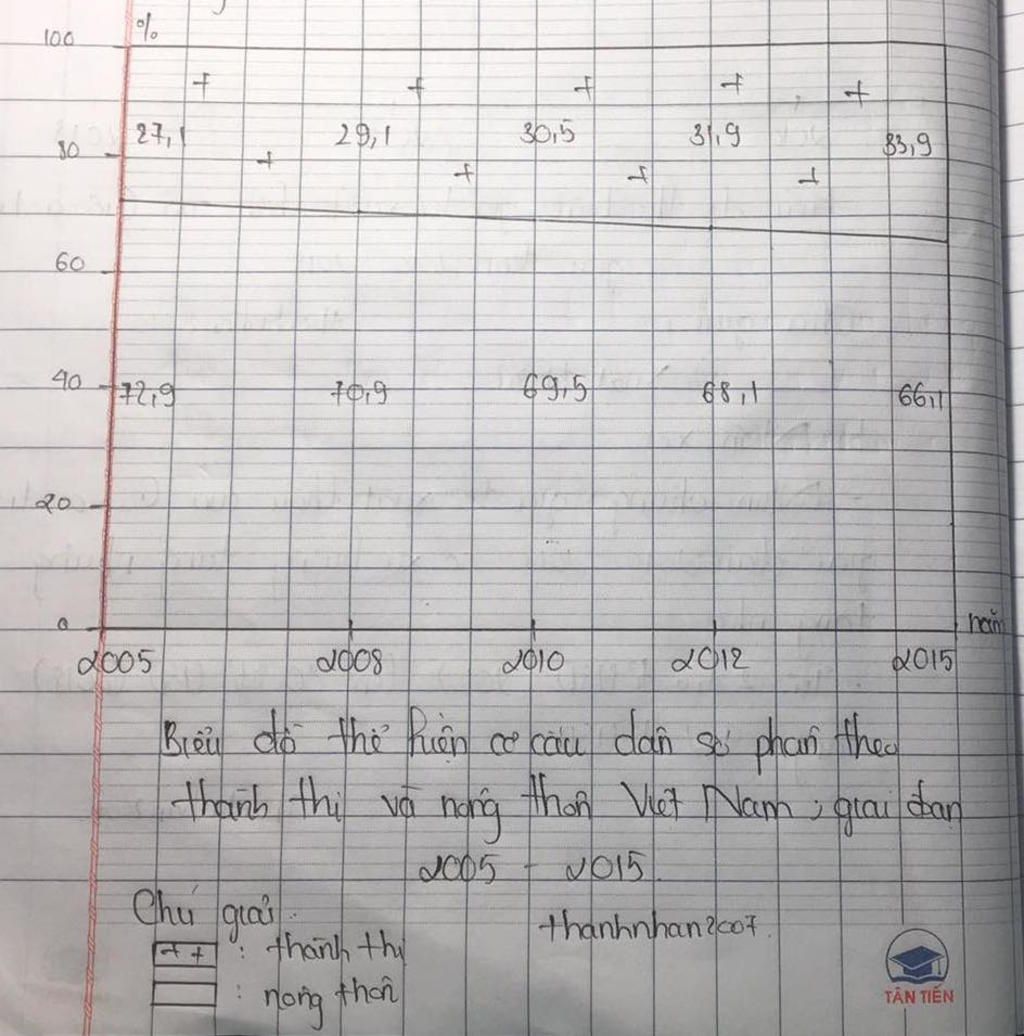 %
100
27,1 29,1 30,5 31,9 33,9
80
60
40
72,9 70,9 69,5 68,1 66,1
20
0
năm
2005 2008 2010 2012 2015
Biểu đồ thể hiện cơ cấu dân số phân theo
thành thị và nông thôn Việt Nam, giai đoạn
2005 - 2015.
Chú giải:
++ : thành thị
: nông thôn
thanhnhan2007.
TÂN TIẾN